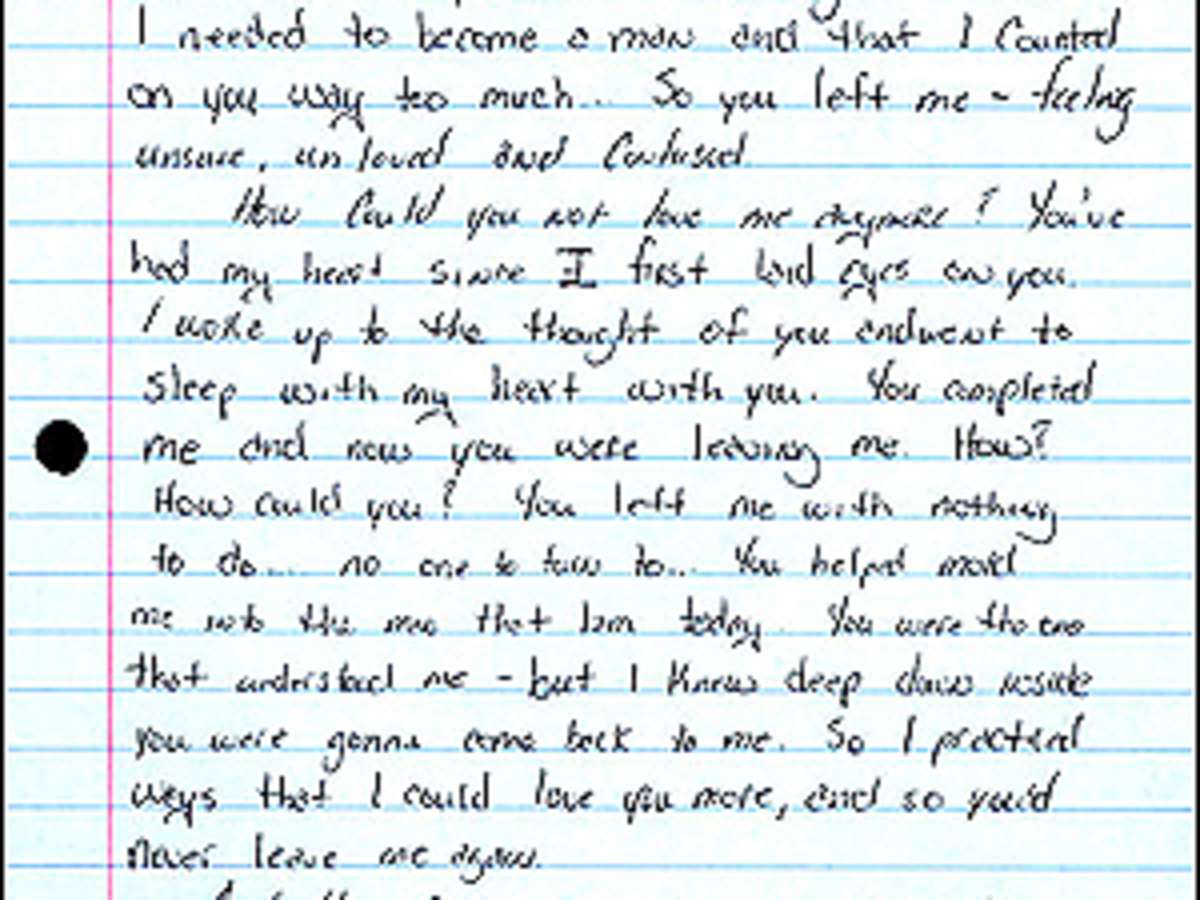 I needed to become a man and that I counted
on you way too much... So you left me - feeling
unsure, unloved and Confused.
How Could you not love me anymore? You've
had my heart since I first laid eyes on you.
I woke up to the thought of you and went to
sleep with my heart with you. You completed
me and now you were leaving me. How?
How could you? You left me with nothing
to do... no one to turn to... You helped mold
me into the man that I am today. You were the one
that understood me - but I knew deep down inside
you were gonna come back to me. So I practiced
ways that I could love you more, and so you'd
never leave me again.